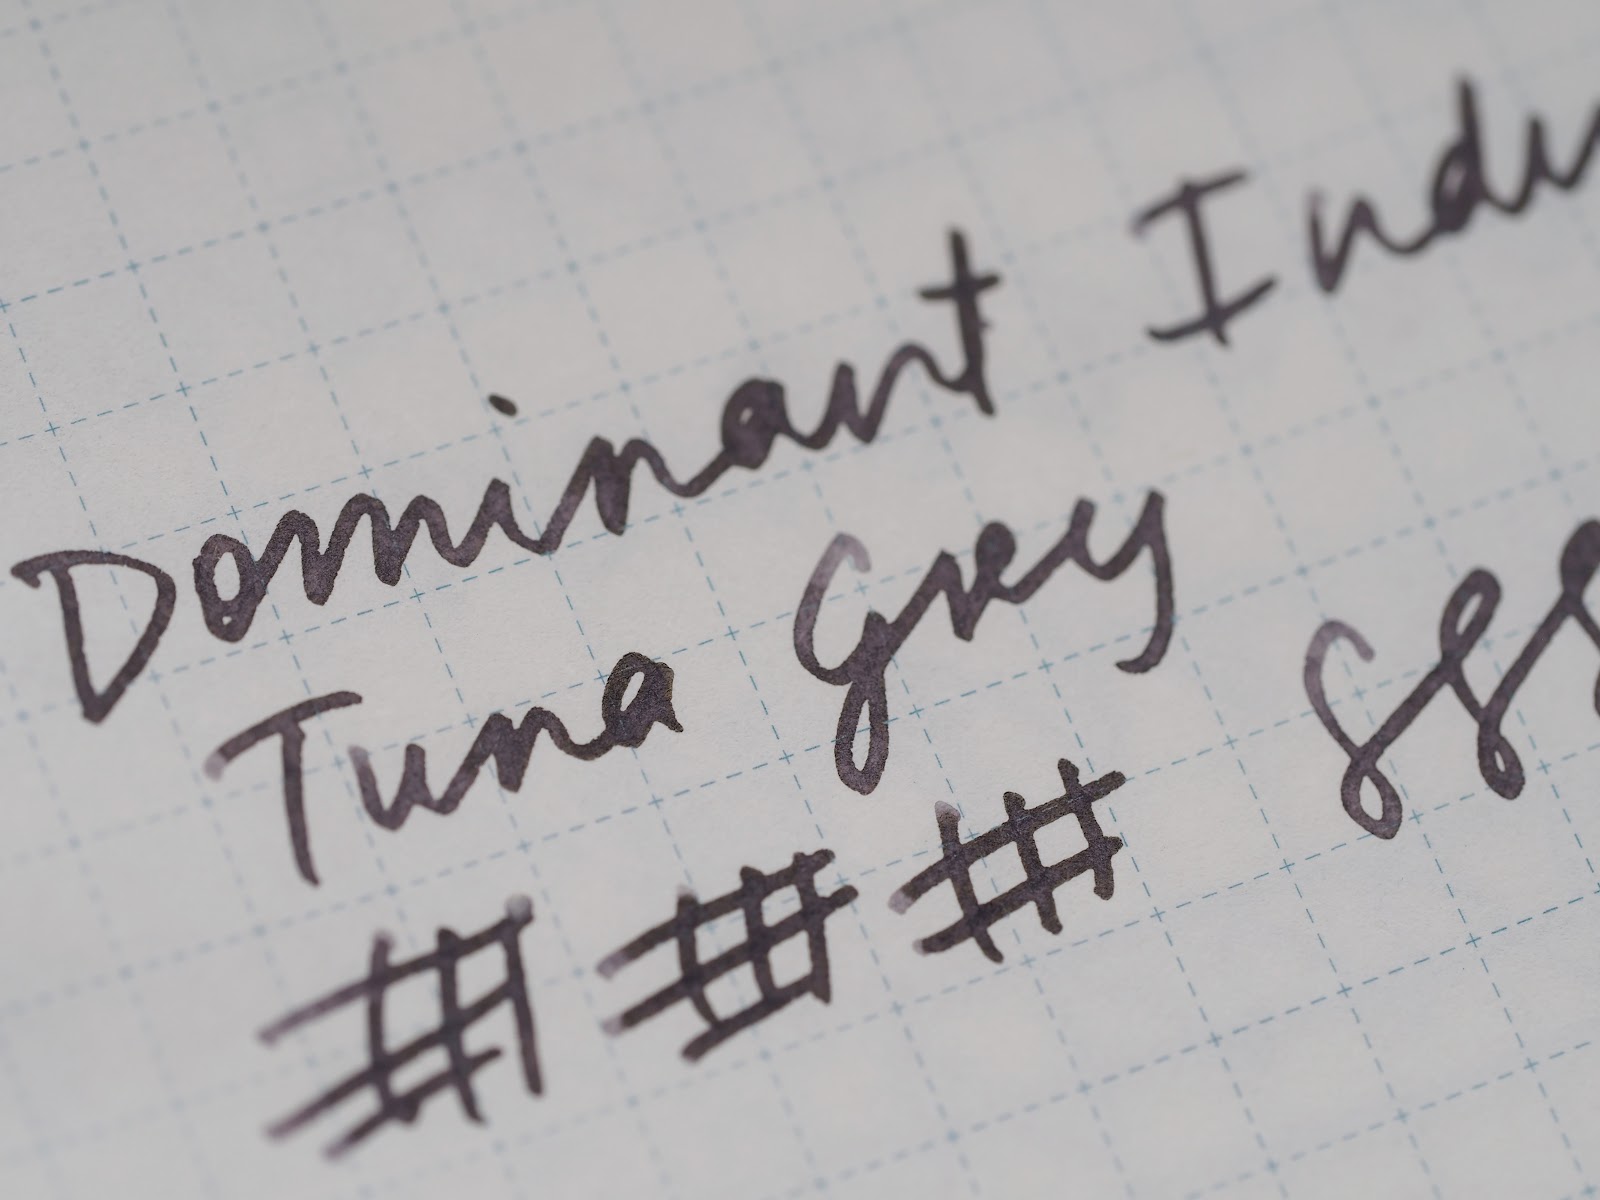 Dominant Indu
Tuna Grey